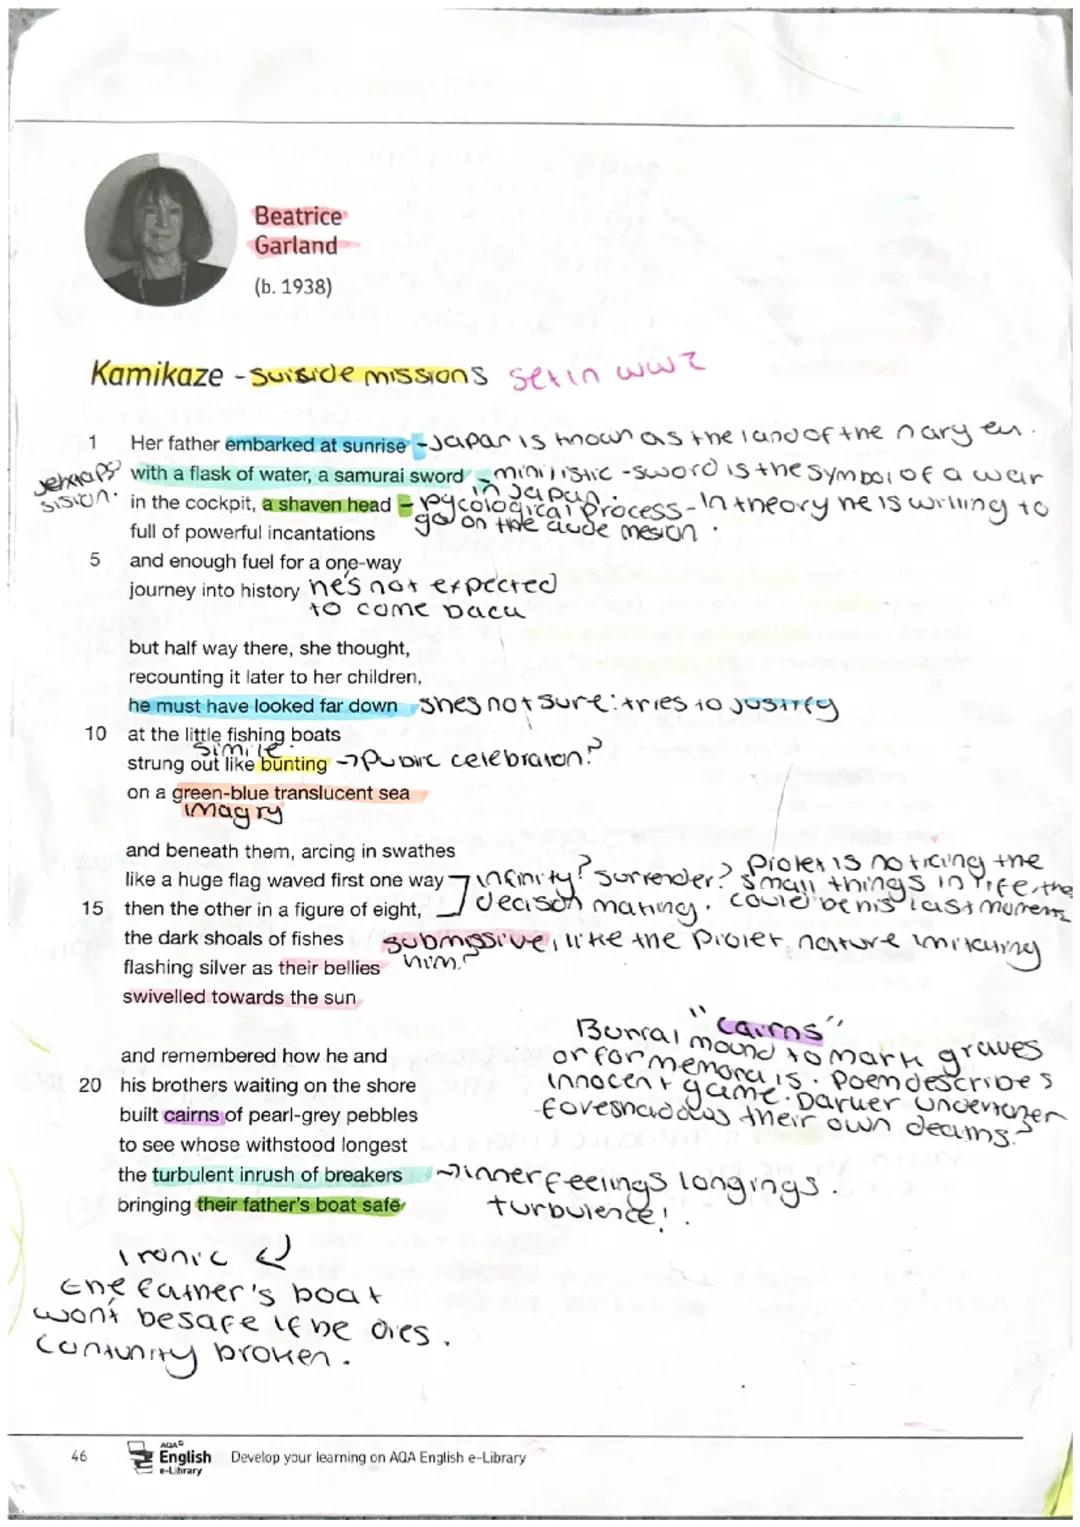 Beatrice
Garland
(b. 1938)
Kamikaze - suiside missions set in WW2
1 Her father embarked at sunrise - Japan is known as the land of the
with a flask of water, a samurai sword - sword is the symbol of a war
in Japan.
in the cockpit, a shaven head - process - In theory he is willing to
go on the
full of powerful incantations
5 and enough fuel for a one-way
journey into history he's not expected
to come back
but half way there, she thought,
recounting it later to her children,
he must have looked far down shes not sure: tries to justify
10 at the little fishing boats
simile.
strung out like bunting → celebration?
on a green-blue translucent sea
imagry
and beneath them, arcing in swathes
like a huge flag waved first one way infinity? surrender? Piolet is noticing the
small things in life, the
15 then the other in a figure of eight, decison making. could be his last moments
the dark shoals of fishes submissive, like the piolet, nature imitating
him?
flashing silver as their bellies
swivelled towards the sun
"cairns"
mound to mark graves
and remembered how he and or for memorials. Poem describes
20 his brothers waiting on the shore innocent game. Darker
built cairns of pearl-grey pebbles foreshadows their own deaths?
to see whose withstood longest
the turbulent inrush of breakers → inner feelings longings.
turbulence!.
bringing their father's boat safe
Ironic
the father's boat
won't be safe if he dies.
broken.
46 AQA English e-Library Develop your learning on AQA English e-Library